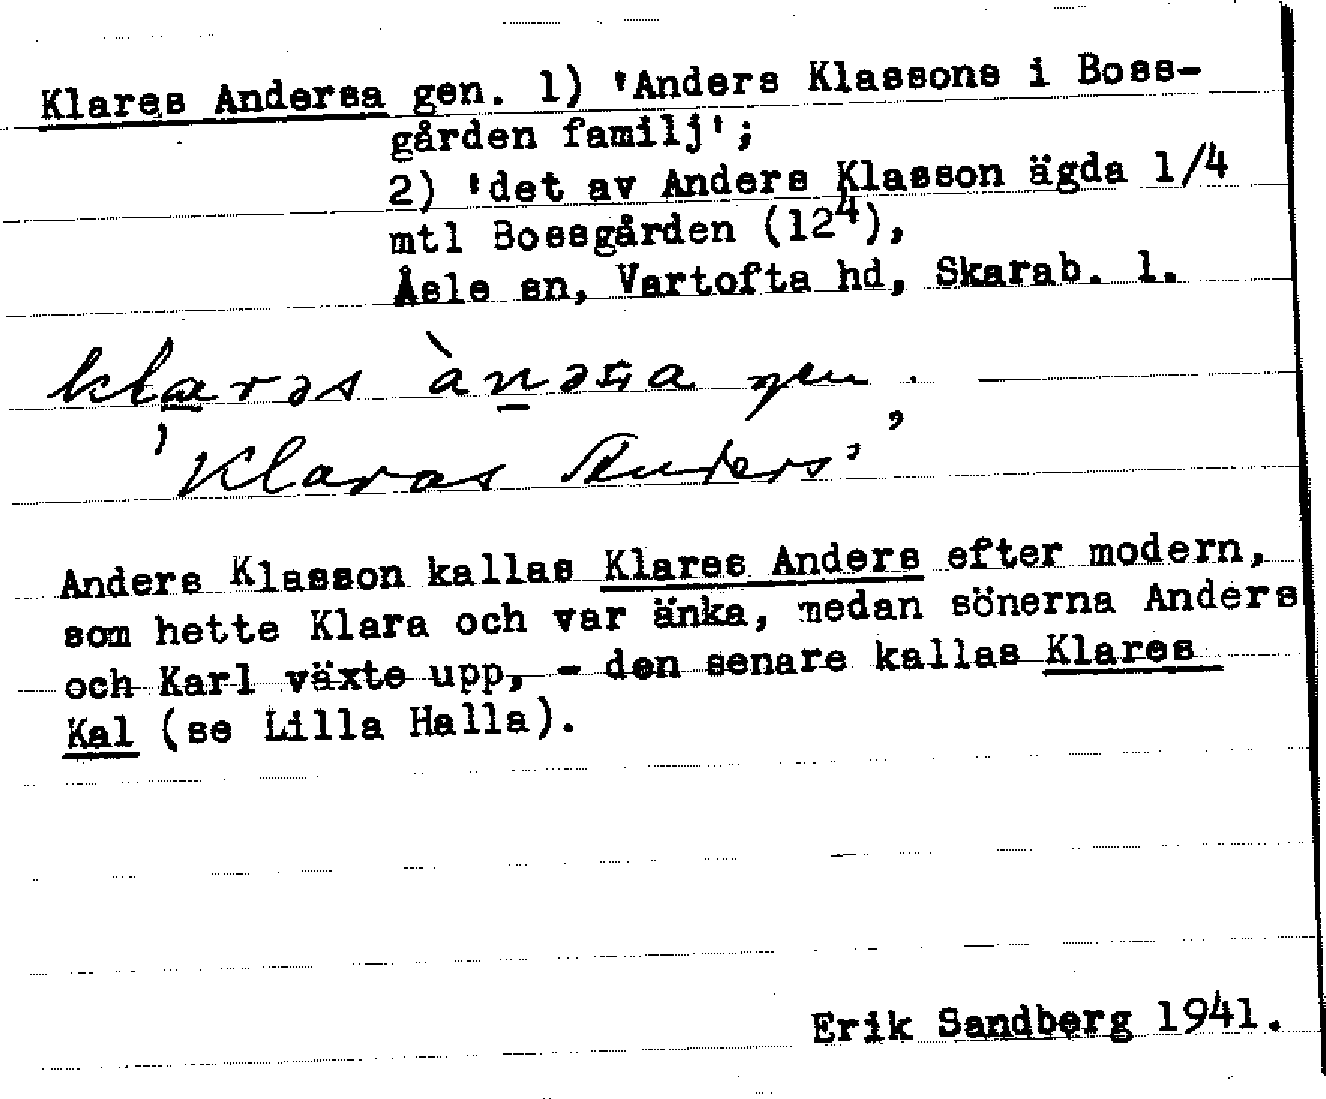 Klares Andersa gen. 1) 'Anders Klassons i Boss-
gården familj';
2) 'det av Anders Klasson ägda 1/4
mtl Bossgården (12⁴),
Åsle sn, Vartofta hd, Skarab. l.
klarəs gen.
'Klaras Anders'
Anders Klasson kallas Klares Anders efter modern,
som hette Klara och var änka, medan sönerna Anders
och Karl växte upp, - den senare kallas Klares
Kal (se Lilla Halla).
Erik Sandberg 1941.